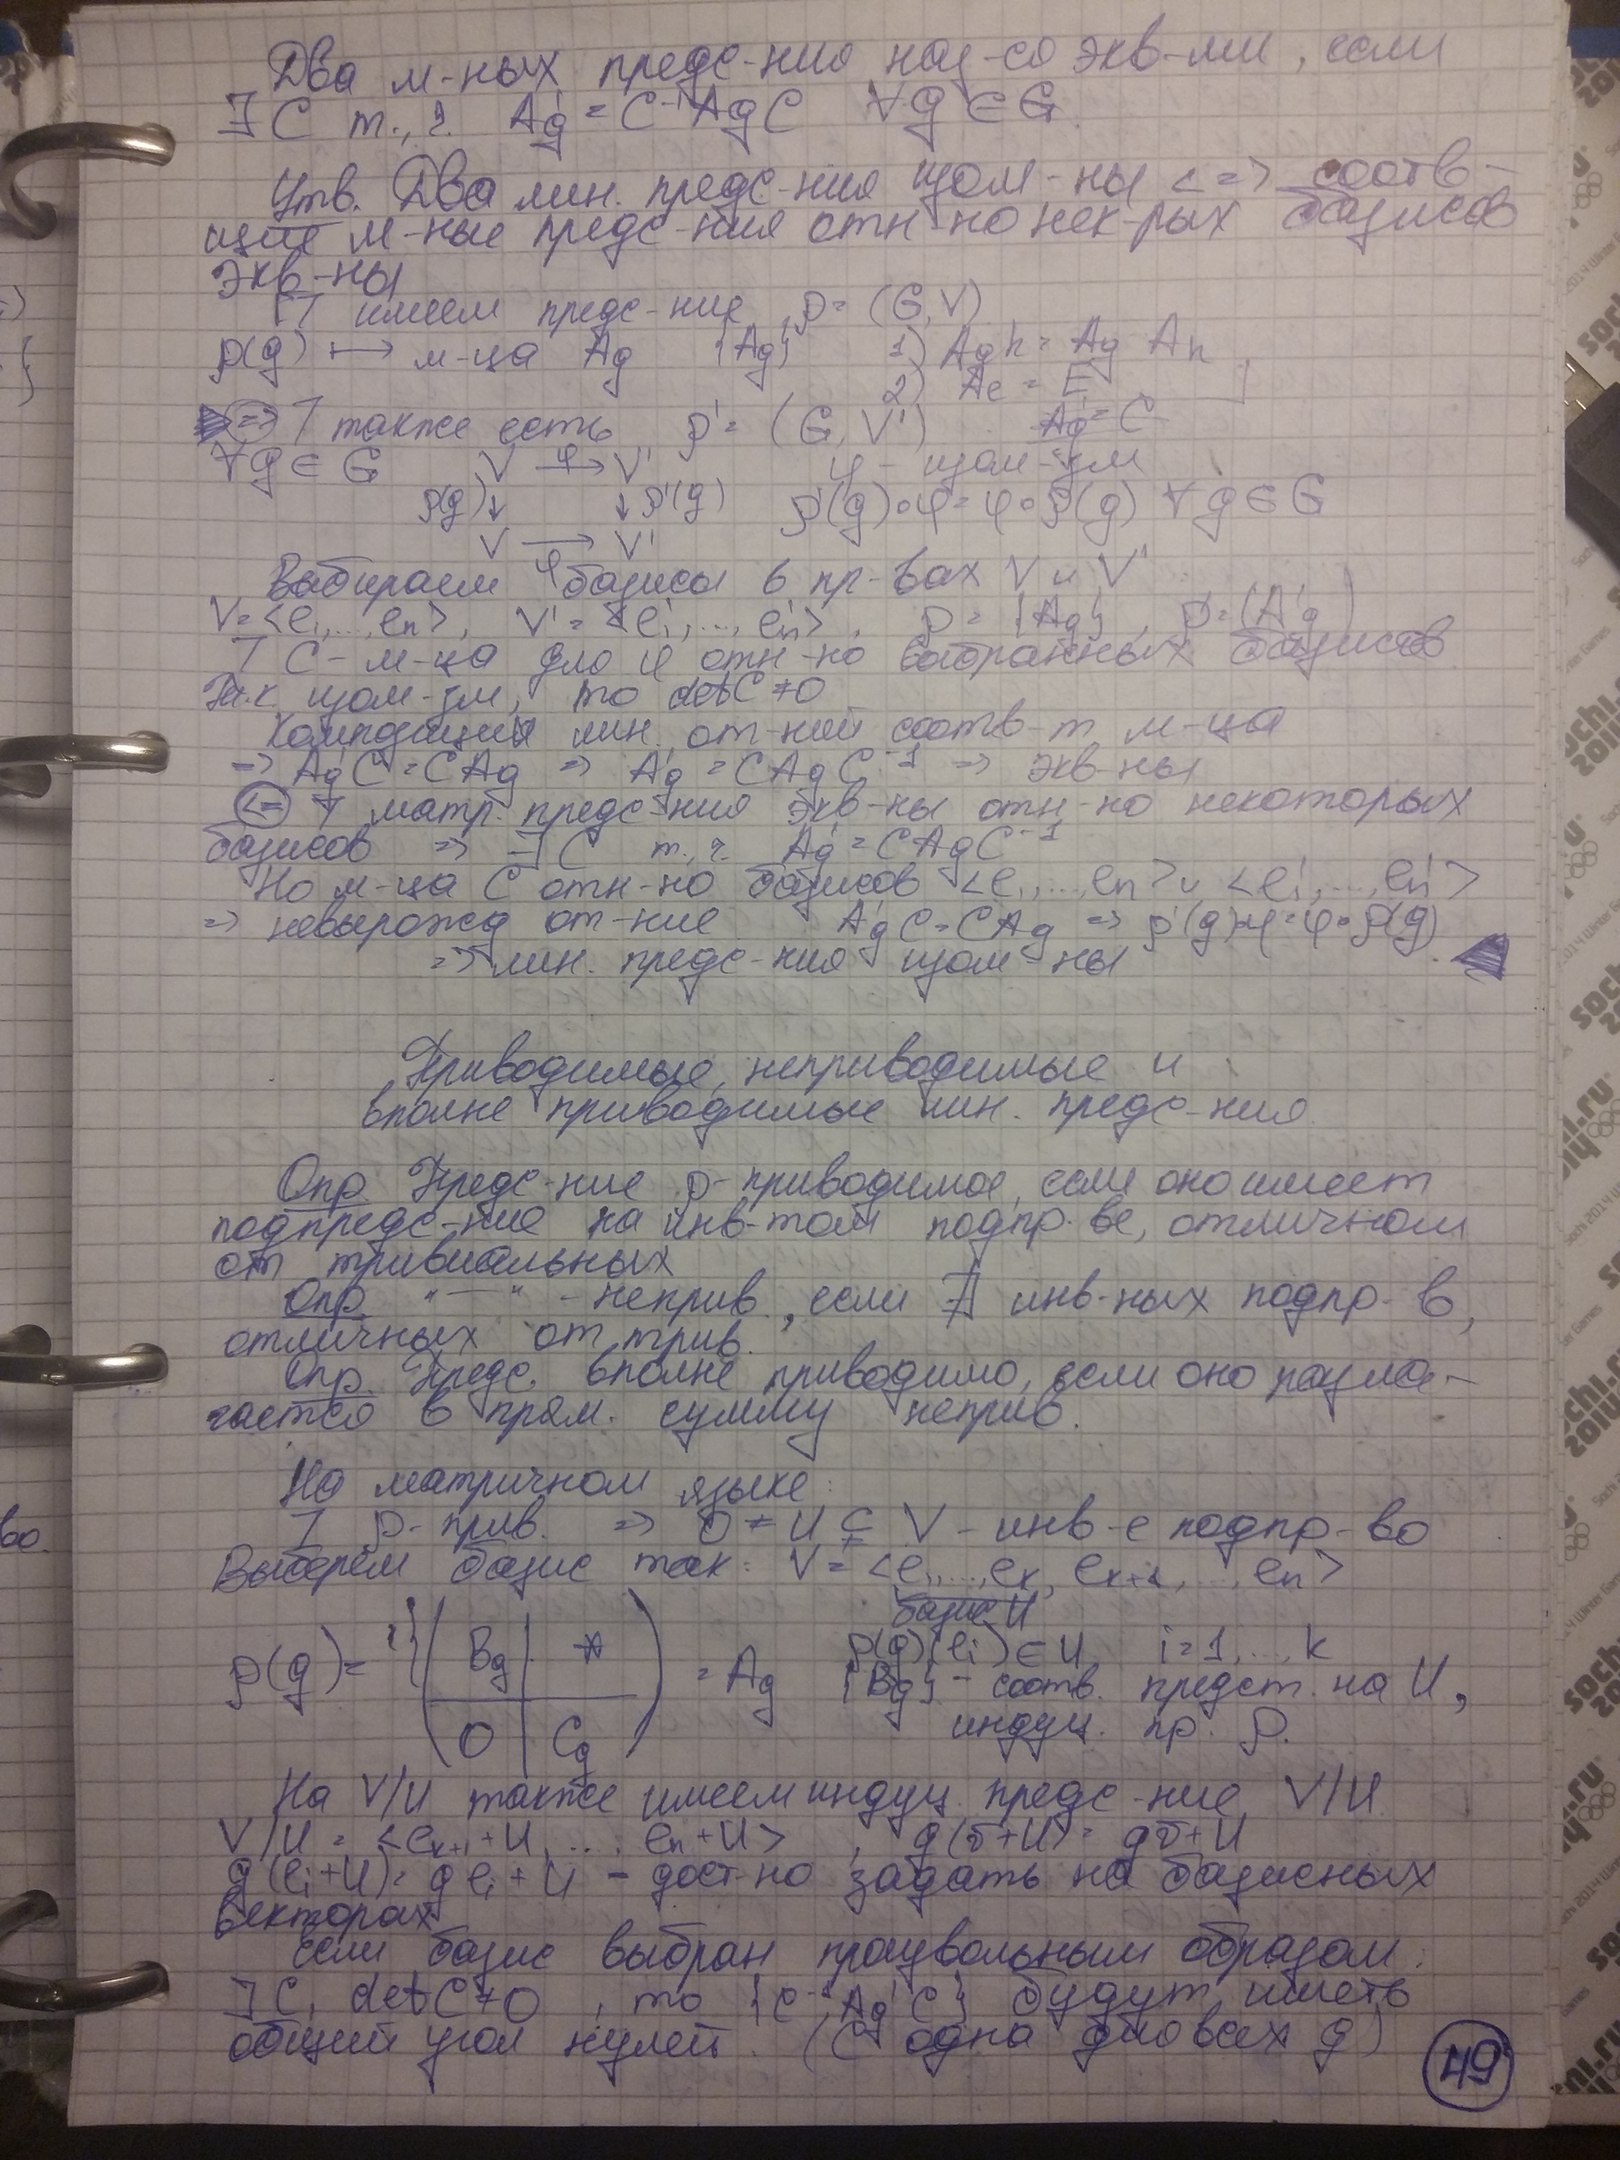 Два м-ных предс-ния наз-ся экв-ми, если
∃ C т.,ч. A'g = C⁻¹AgC ∀g∈G.
Утв. Два лин. предс-ния изом-ны <=> соотв-
щие м-ные предс-ния отн-но нек-рых базисов
экв-ны
] имеем предс-ние ρ = (G, V)
ρ(g) ⟼ м-ца Ag {Ag} 1) Agh = Ag Ah
2) Ae = E
(=>) ] также есть ρ' = (G, V') A'g = C
∀g∈G V —φ→ V' φ - изом-зм
ρ(g)↓ ↓ρ'(g) ρ'(g)∘φ = φ∘ρ(g) ∀g∈G
V —φ→ V'
Выбираем базисы в пр-вах V и V'
V = <e₁,...,en>, V' = <e'₁,...,e'n>, ρ = {Ag}, ρ' = (A'g)
] C - м-ца для φ отн-но выбранных базисов
Т.к. изом-зм, то det C ≠ 0
Композиции лин. от-ний соотв-т м-ца
=> A'gC = CAg => A'g = CAgC⁻¹ => экв-ны
(<=) ] матр. предс-ния экв-ны отн-но некоторых
базисов => ∃ C т.,ч. A'g = CAgC⁻¹
Но м-ца C отн-но базисов <e₁,...,en> и <e'₁,...,e'n>
=> невырожд от-ние A'gC = CAg => ρ'(g)∘φ = φ∘ρ(g).
=> лин. предс-ния изом-ны
Приводимые, неприводимые и
вполне приводимые лин. предс-ния
Опр. Предс-ние ρ - приводимое, если оно имеет
подпредс-ние на инв-том подпр-ве, отличном
от тривиальных
Опр. "—" - неприв., если ∄ инв-ных подпр-в,
отличных от трив.
Опр. Предс. вполне приводимо, если оно разла-
гается в прям. сумму неприв.
На матричном языке:
] ρ - прив. => 0 ≠ U ⊊ V - инв-е подпр-во
Выберем базис так: V = <e₁,...,ek, ek+1,...,en>
базис U
ρ(g) = ( Bg | * ) = Ag ρ(g)(ei) ∈ U, i=1,...,k
{Bg} - соотв. предст. на U,
( 0 | Cg ) индуц. пр. ρ.
На V/U также имеем индуц. предс-ние V/U
V/U = <ek+1+U,..., en+U>, g(v̄+U) = gv̄+U
g(ei+U) = gei+U - дост-но задать на базисных
векторах
Если базис выбран произвольным образом:
∃ C, det C ≠ 0, то {C⁻¹A'gC} будут иметь
общий угол нулей. (C одна для всех g)
49